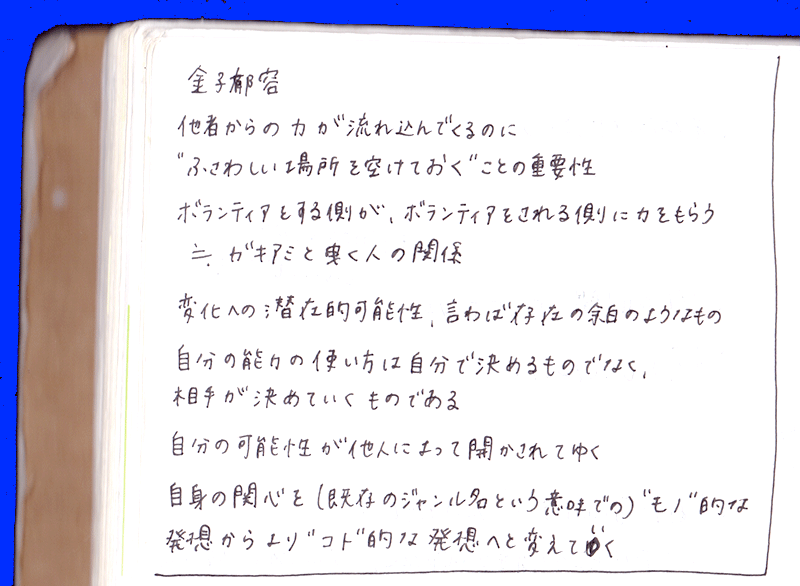 金子郁容
他者からの力が流れ込んでくるのに
"ふさわしい場所を空けておく"ことの重要性
ボランティアをする側が、ボランティアをされる側に力をもらう
≒ ガキアミと曳く人の関係
変化への潜在的可能性、言わば存在の余白のようなもの
自分の能力の使い方は自分で決めるものでなく、
相手が決めていくものである
自分の可能性が他人によって開かされてゆく
自身の関心を(既存のジャンル名という意味での)"モノ"的な
発想からより"コト"的な発想へと変えてく